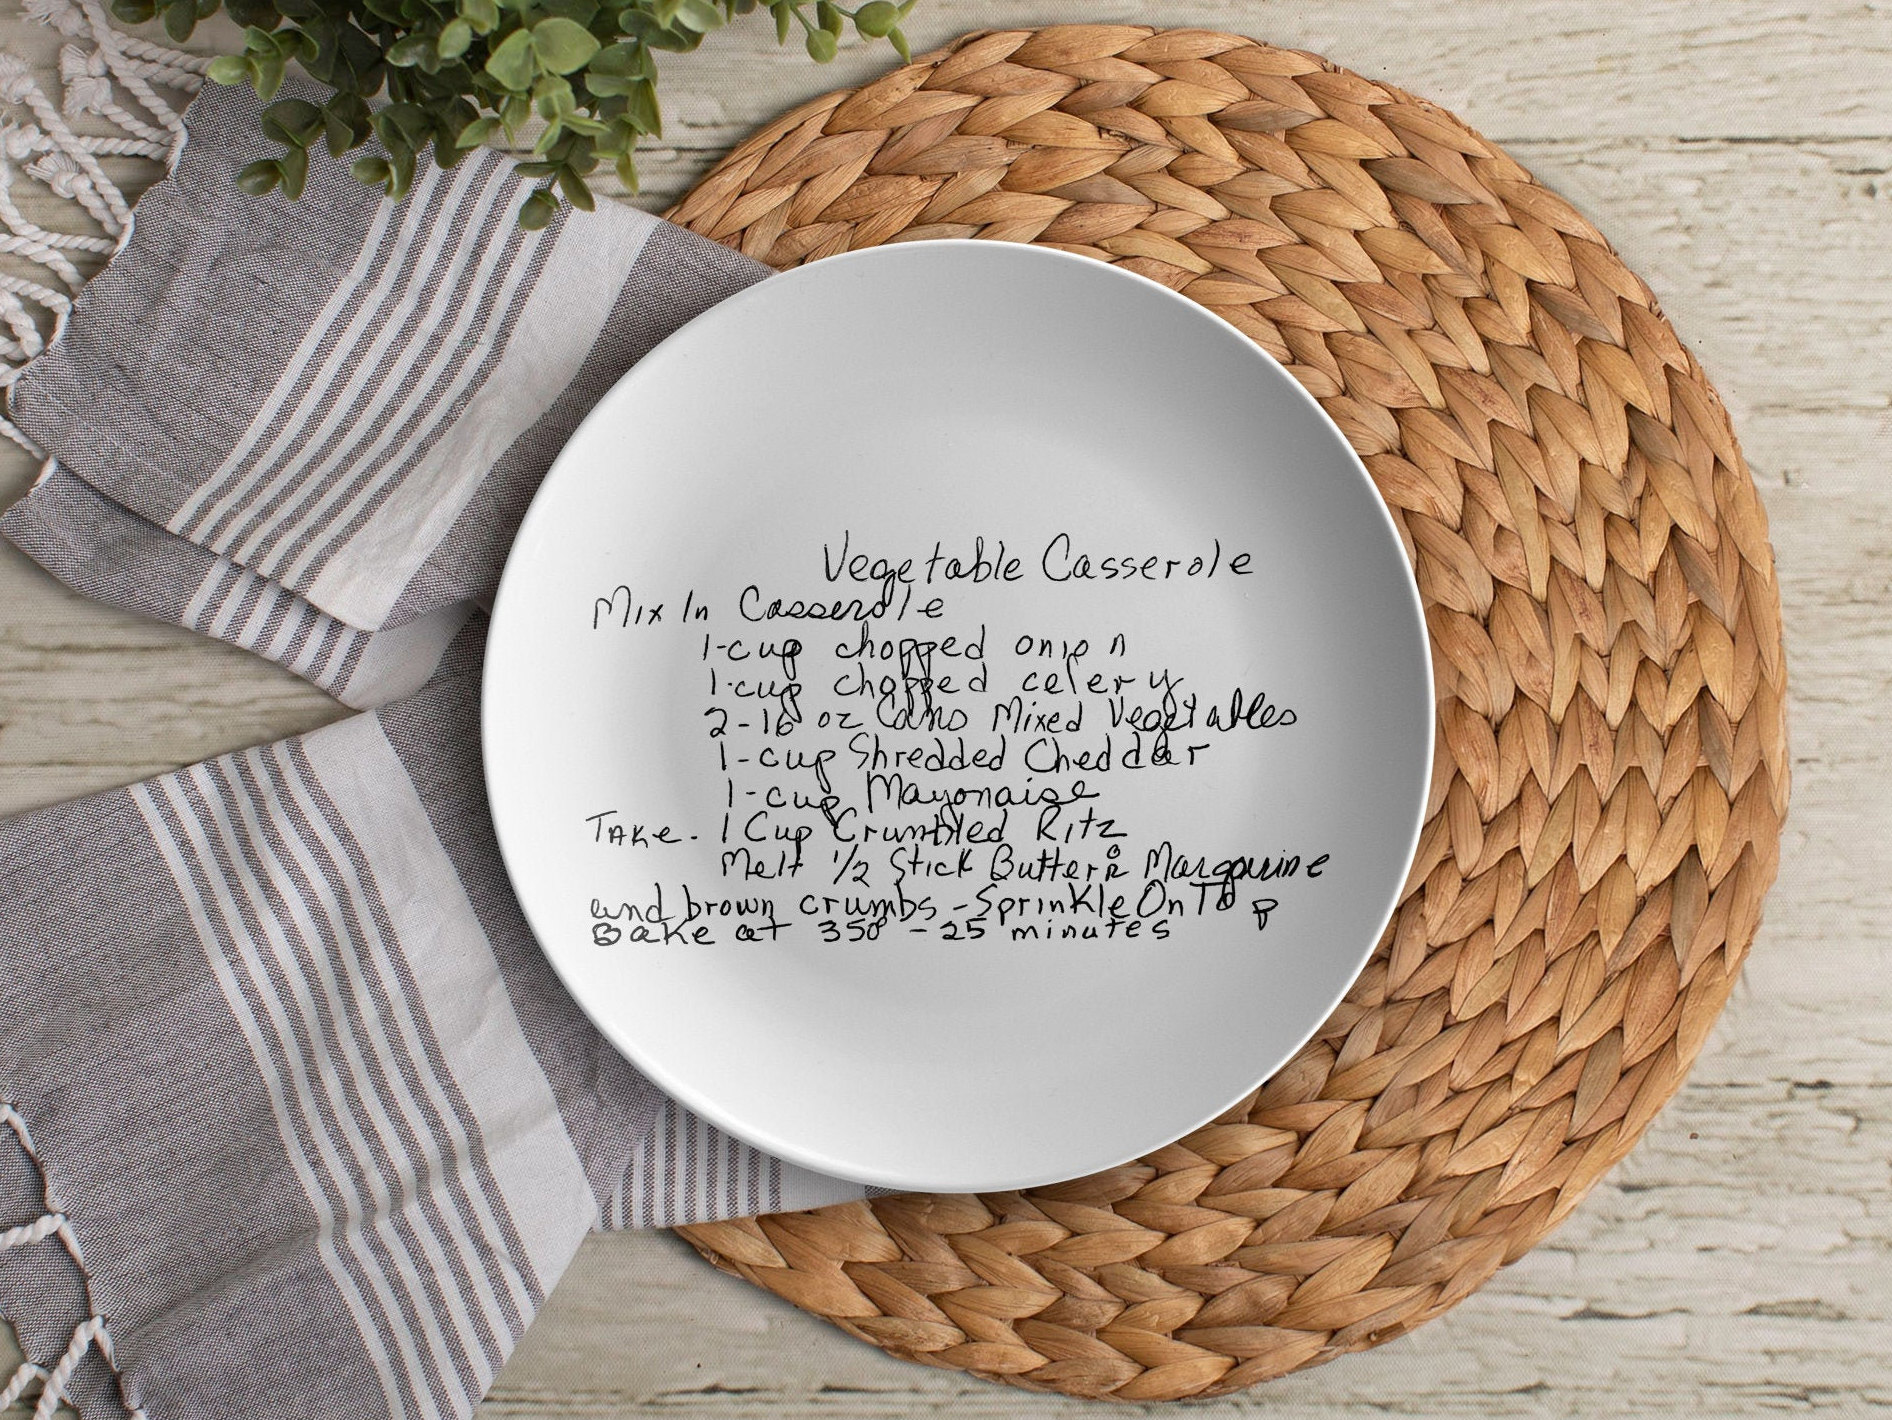 Vegetable Casserole
Mix In Casserole
1-cup chopped onion
1-cup chopped celery
2-16 oz Cans Mixed Vegetables
1-cup Shredded Cheddar
1-cup Mayonaise
Take. 1 Cup Crumbled Ritz
Melt 1/2 Stick Butter or Margarine
and brown crumbs - Sprinkle On Top
Bake at 350° - 25 minutes